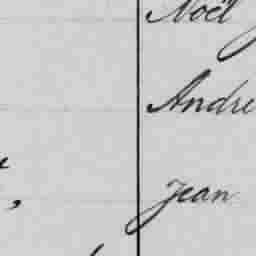 Noël
André
Jean